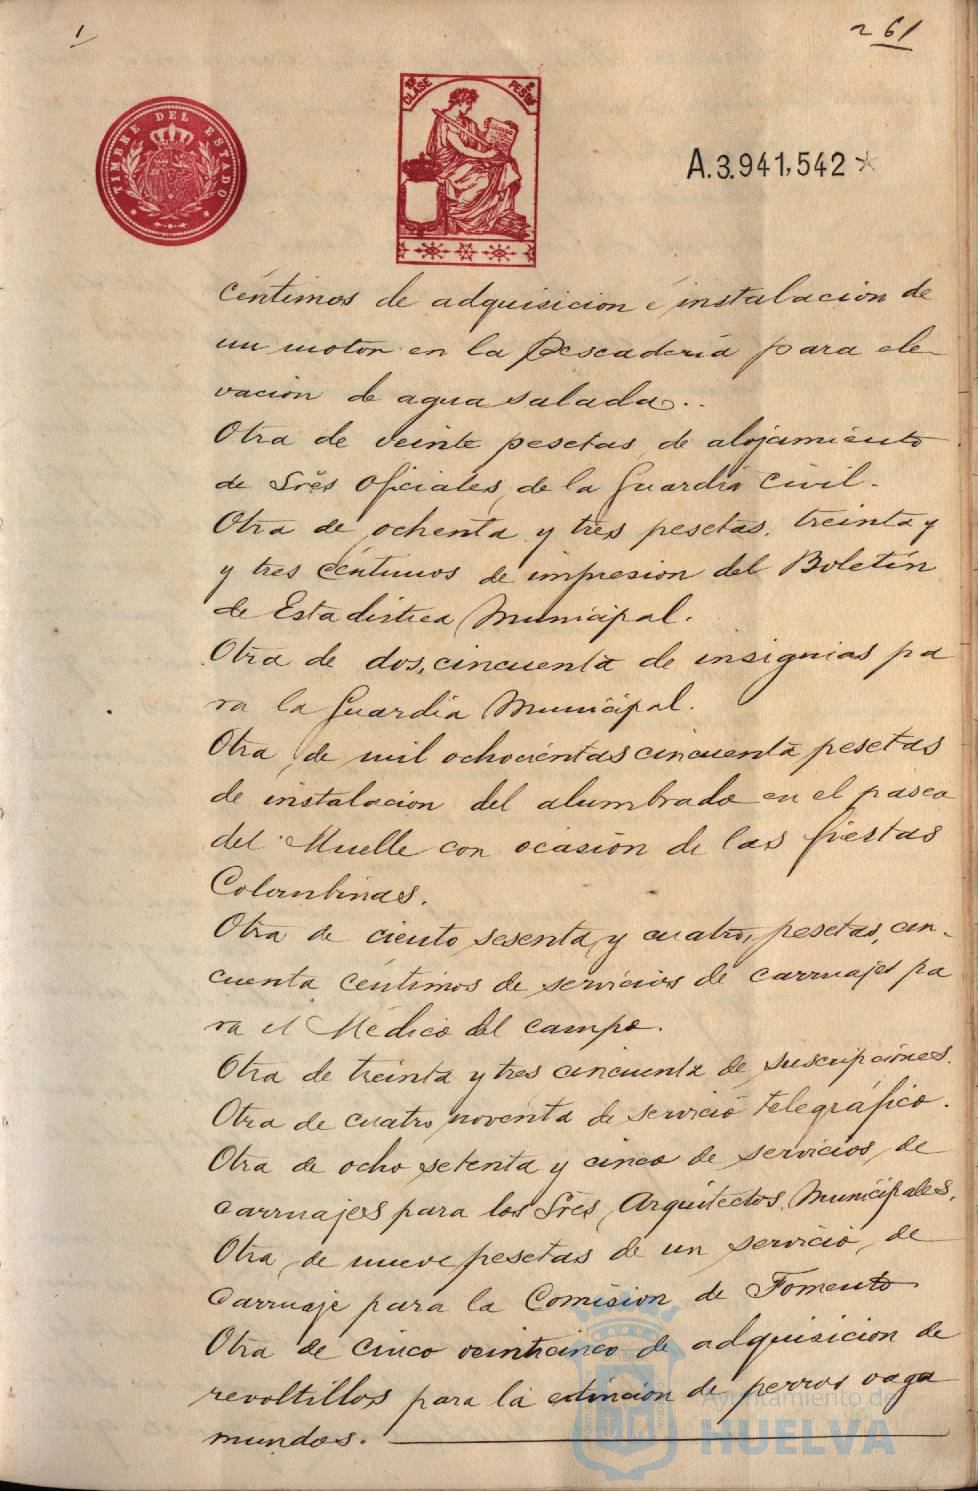 1
261
TIMBRE DEL ESTADO
CLASE
PESTAS
A.3.941,542*
céntimos de adquisicion é instalación de
un motor en la Pescadería para ele-
vación de agua salada..
Otra de veinte pesetas, de alojamiento
de Srēs Oficiales, de la Guardia Civil.
Otra de ochenta y tres pesetas, treinta y
y tres céntimos de impresion del Boletín
de Estadística Municipal.
Otra de dos, cincuenta de insignias pa
ra la Guardia Municipal.
Otra, de mil ochocientas cincuenta pesetas
de instalación del alumbrado en el paseo
del Muelle con ocasión de las fiestas
Colombinas.
Otra de ciento sesenta y cuatro, pesetas, cin-
cuenta céntimos de servicios de carruajes pa
ra el Médico del campo.
Otra de treinta y tres cincuenta de suscripciones.
Otra de cuatro noventa de servicio telegráfico.
Otra de ocho setenta y cinco de servicios, de
carruajes para los Srēs, Arquitectos Municipales.
Otra, de nueve pesetas de un servicio, de
carruaje para la Comision de Fomento
Otra de cinco veinticinco de adquisicion de
revoltillos para la extinción de perros vaga
mundos.
Ayuntamiento de
HUELVA